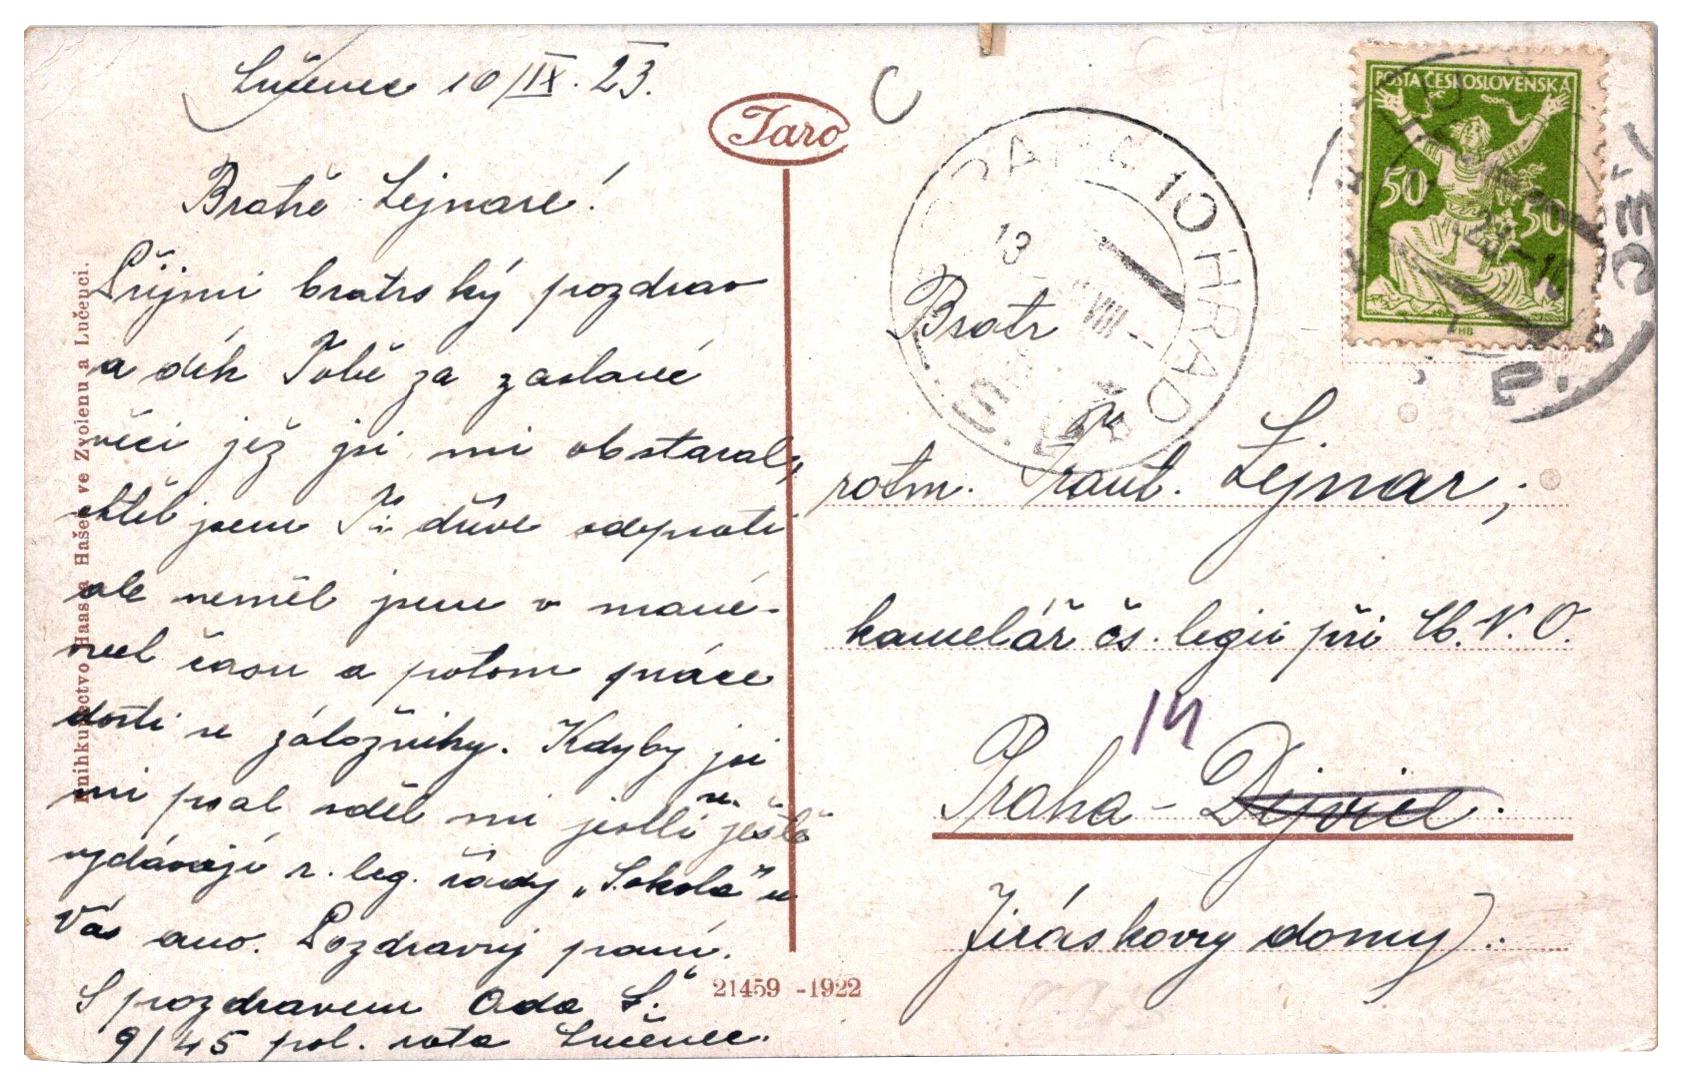 Lučenec 10/IX. 23.
Bratře Lejnare!
Přijmi bratrský pozdrav
a dík Tobě za zaslané
věci jež jsi mi obstaral,
chtěl jsem Ti dříve odepsati
ale neměl jsem v mané-
vrech času a potom práce
dosti se záložníky. Kdyby jsi
mi psal sděl mi jestli se ještě
vydávají r. leg. řády „Sokola" u
Vás ano. Pozdravuj paní.
S pozdravem Ada L.
9/45 pol. rota Lučenec.
Knihkupectvo Haas a Hašek ve Zvolenu a Lučenci.
Taro
21459 -1922
POŠTA ČESKOSLOVENSKÁ
50 50
PRAHA 10 HRAD
13 VIII
Bratr
rotm. Frant. Lejnar,
kancelář čs. legií při M. N. O.
14
Praha - Dejvice.
Jiráskovy domy).